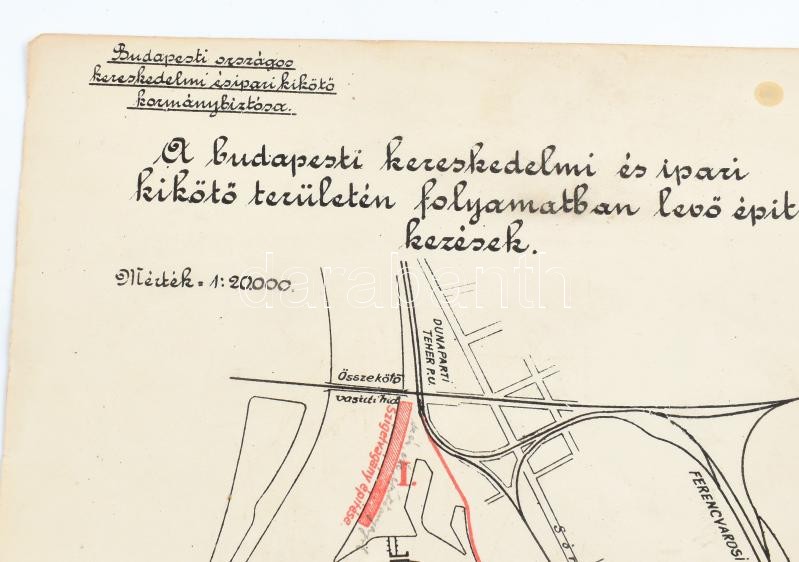 Budapesti országos
kereskedelmi és ipari kikötő
kormánybiztosa.
A budapesti kereskedelmi és ipari
kikötő területén folyamatban levő épít-
kezések.
Mérték = 1:20.000.
darabanth
DUNAPARTI
TEHER P.U.
Összekötő
vasúti híd
Szigetvágány építése.
I.
FERENCVÁROSI